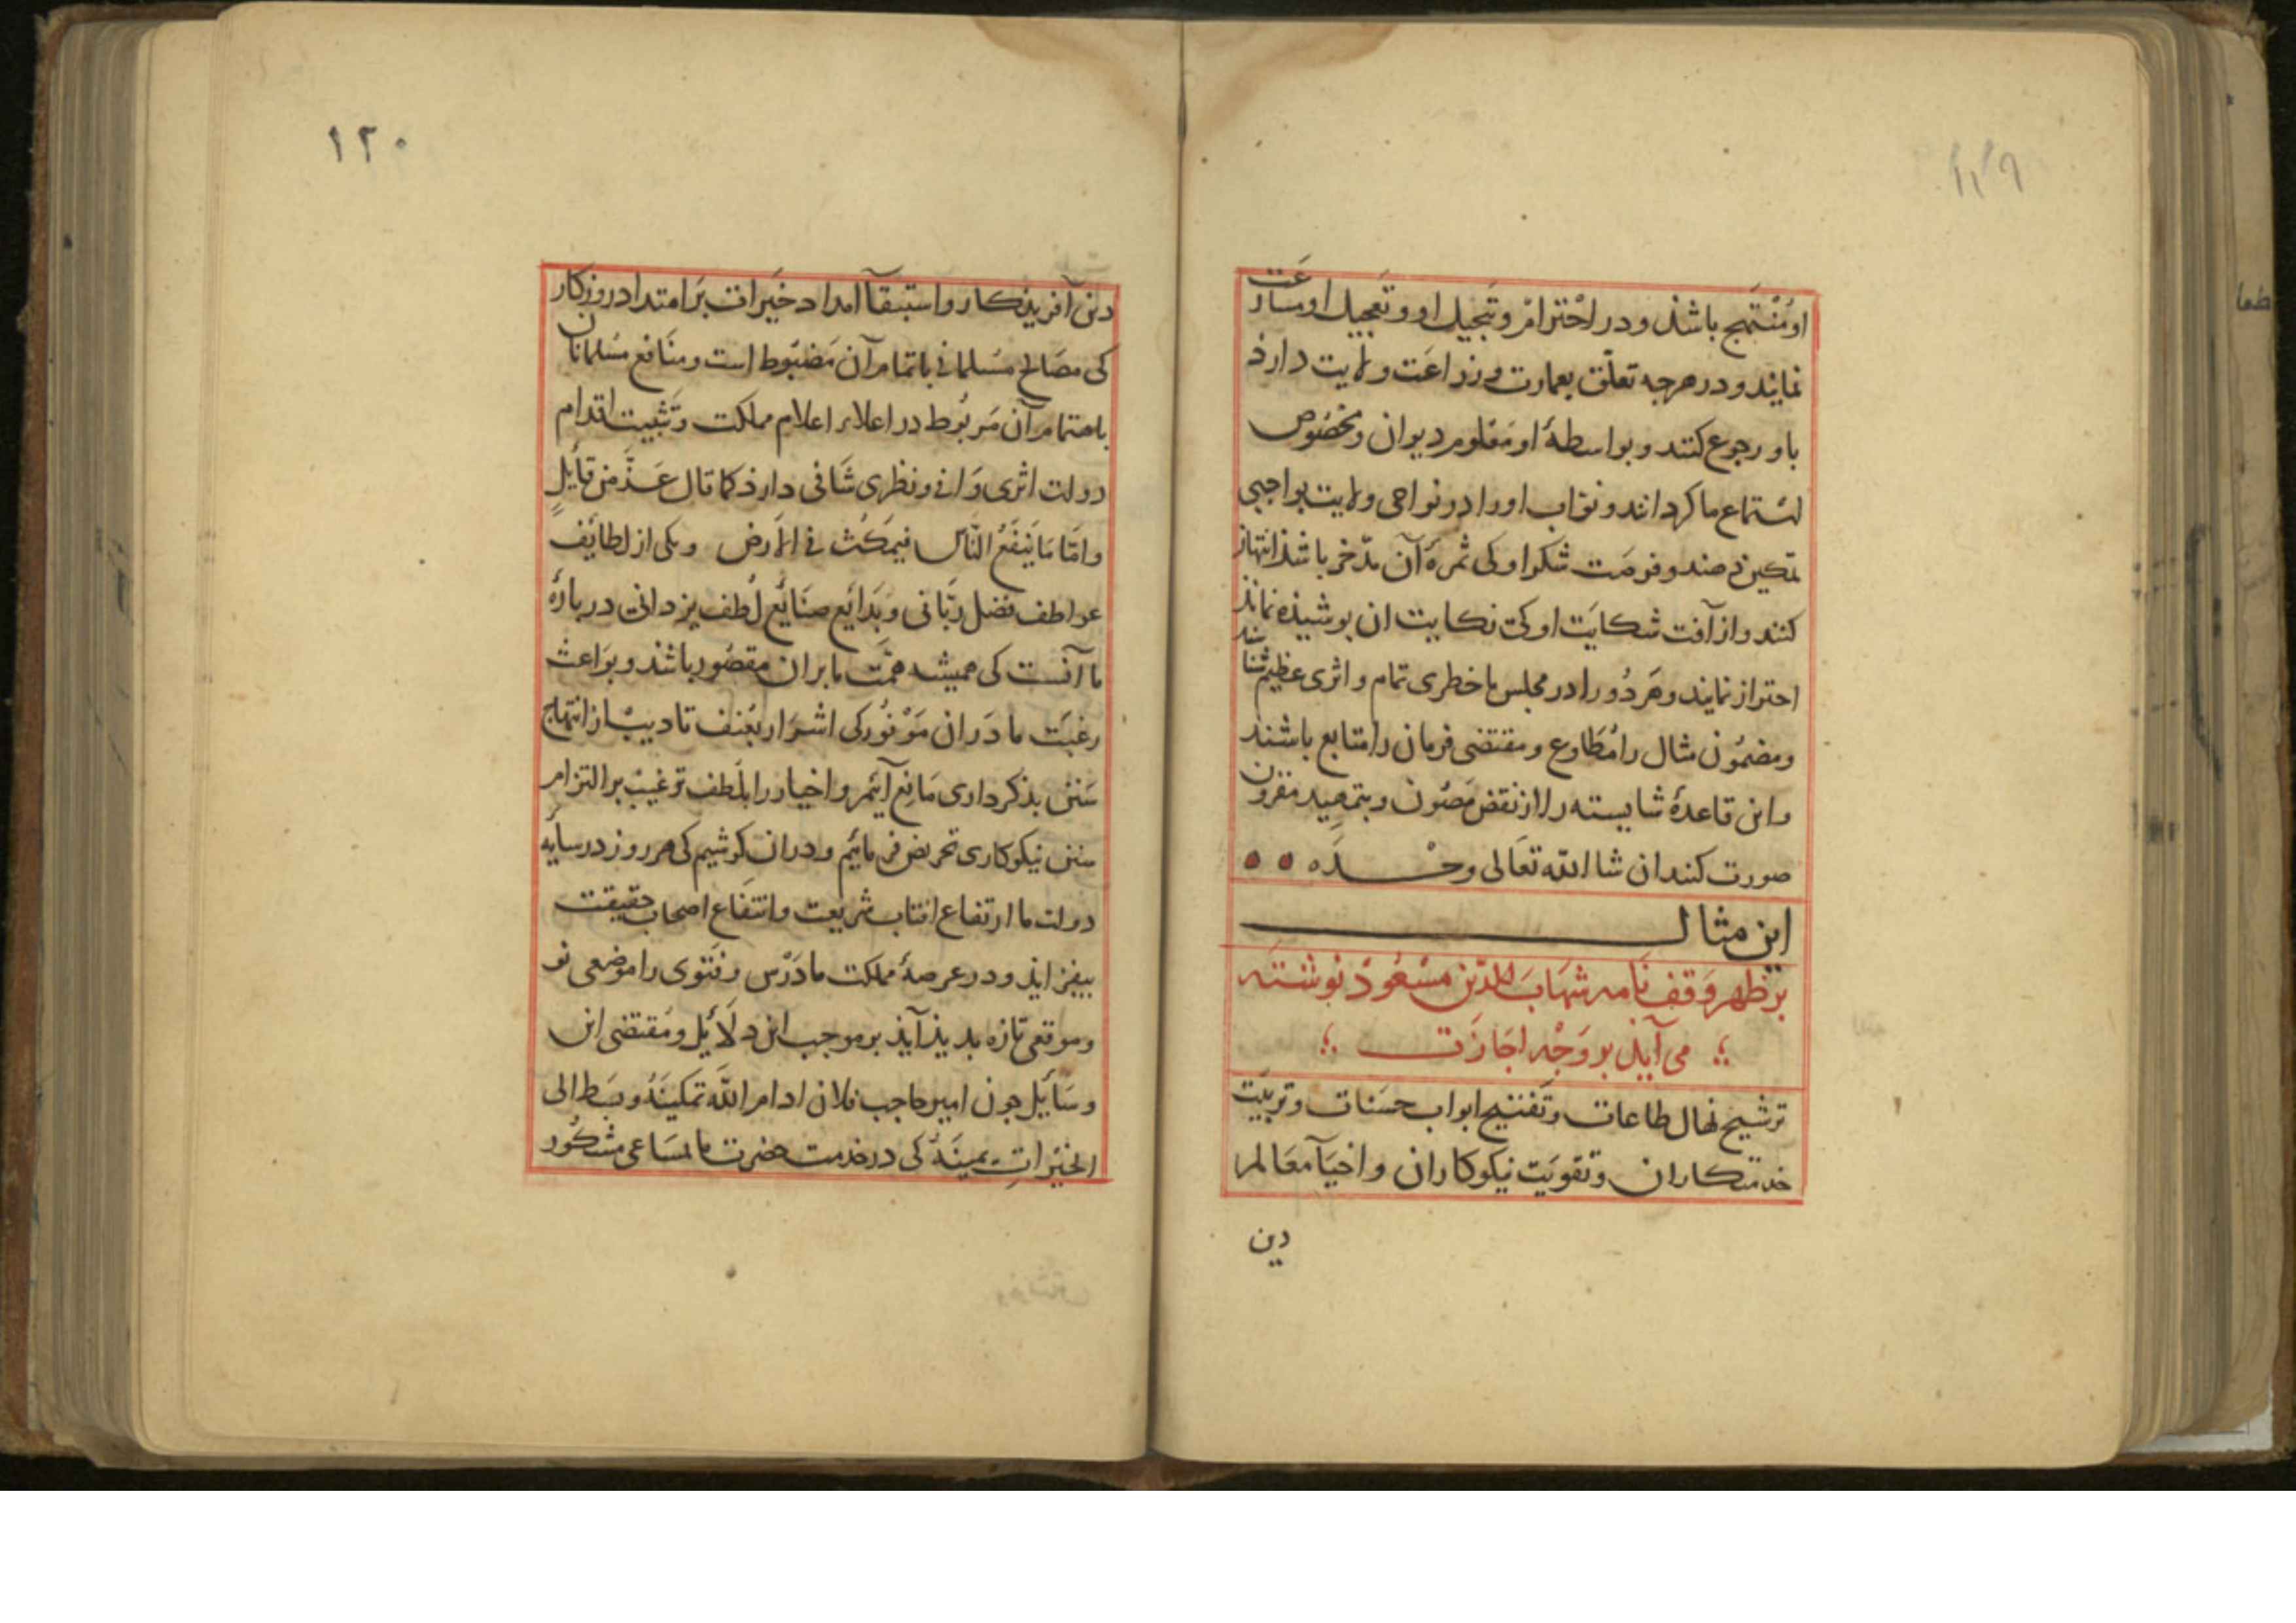 ۱۱۹
او مُنْتَهج باشذ و در احْترامْ و تَبجیل او و تعجیل او مسارعَت
نمایند و در هرجه تعلّق بعمارت و زراعَت ولایت دارذ
باو رجوع کنند و بواسطهٔ او مَعلوم دیوان و مَخصُوص
استماع ما کردانند و نوّاب او را در نواحی ولایت بواجبی
تمکین دهند و فرصَت شکر او کی ثمرهٔ آن مدّخر باشذ انتهاز
کنند و از آفت شکایَت او کی نکایت ان بوشیذه نماند
احتراز نمایند و هَر دُو را در مجلس ما خطری تمام و اثری عظیم شناسند
و مضمُون مثال را مُطَاوع و مقتضی فرمان را متابع باشند
و این قاعدهٔ شایسته را از نقض مَصُون و بتمهید مقرون
صورت کنند ان شا الله تعَالی وحْـــدَه
این مثالـــــ
بَر ظهر وَقف نَامه شهَابَ الدّین مسْعُودْ نوشتَه
می آیذ بر وَجْه اجَازَت
ترشیح نهال طاعات و تَفتیح ابواب حسَنات و تربیَت
خدمتکاران و تقویَت نیکوکاران و احیآ معَالم
دین
۱۲۰
دین آفریذکار و استبقآ امداد خَیرات بَر امتداد روزکار
کی مصَالح مسلمانی باتمام آن مَضبُوط است و منَافع مسُلمانان
باهتمام آن مَربُوط در اعلاء اعلام مملکت و تَثبیت اقدام
دولت اثری وَافی و نظری شَافی دارذ کما قال عَـزَّ مِن قآیلٍ
و امّا مَا یَنفَعُ النَّاسَ فیَمکُث فی الاَرض و یکی از لطایف
عواطف فضل ربّانی و بَدَایَع صنَایَع لُطف یزدانی در بارهٔ
ما آنست کی همیشه همَّت ما بران مقصُور باشذ و بوَاعث
رغبَت ما دَران مَوْفُور کی اشرَار بعُنف تادیبْ از انتهاج
سَنن بذکرداری مَانِع آئیم و اخیار را بلُطف ترغیبْ بر التزام
سنن نیکوکاری تحریض فرمائیم و دران کوشیم کی هر روز در سایه
دولت ما ارتفاع افتاب شریعت و انتفَاع اصحاب حقیقت
بیفزایذ و در عرصهٔ مملکت ما دَرْس و فتوی را موضعی نو
و موقعی تازه بدیذ آیذ بر موجب این دلآیل و مُقتضی این
وسَآیل جون امیر حاجب فلان ادام اللّه تمکینَهُ و بسَط الی
الخیراتِ یمینَهُ کی در خدمت حضرت ما بمسَاعی مَشکُور